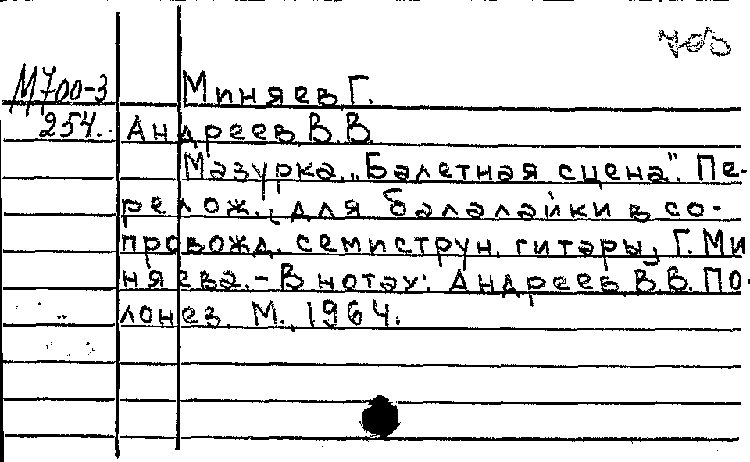 703
М700-3 Миняев, Г.
254. Андреев, В.В.
Мазурка „Балетная сцена". Пе-
релож. [для балалайки в со-
провожд. семиструн. гитары] Г. Ми
няева. - В нотах: Андреев, В.В. По-
лонез. М., 1964.